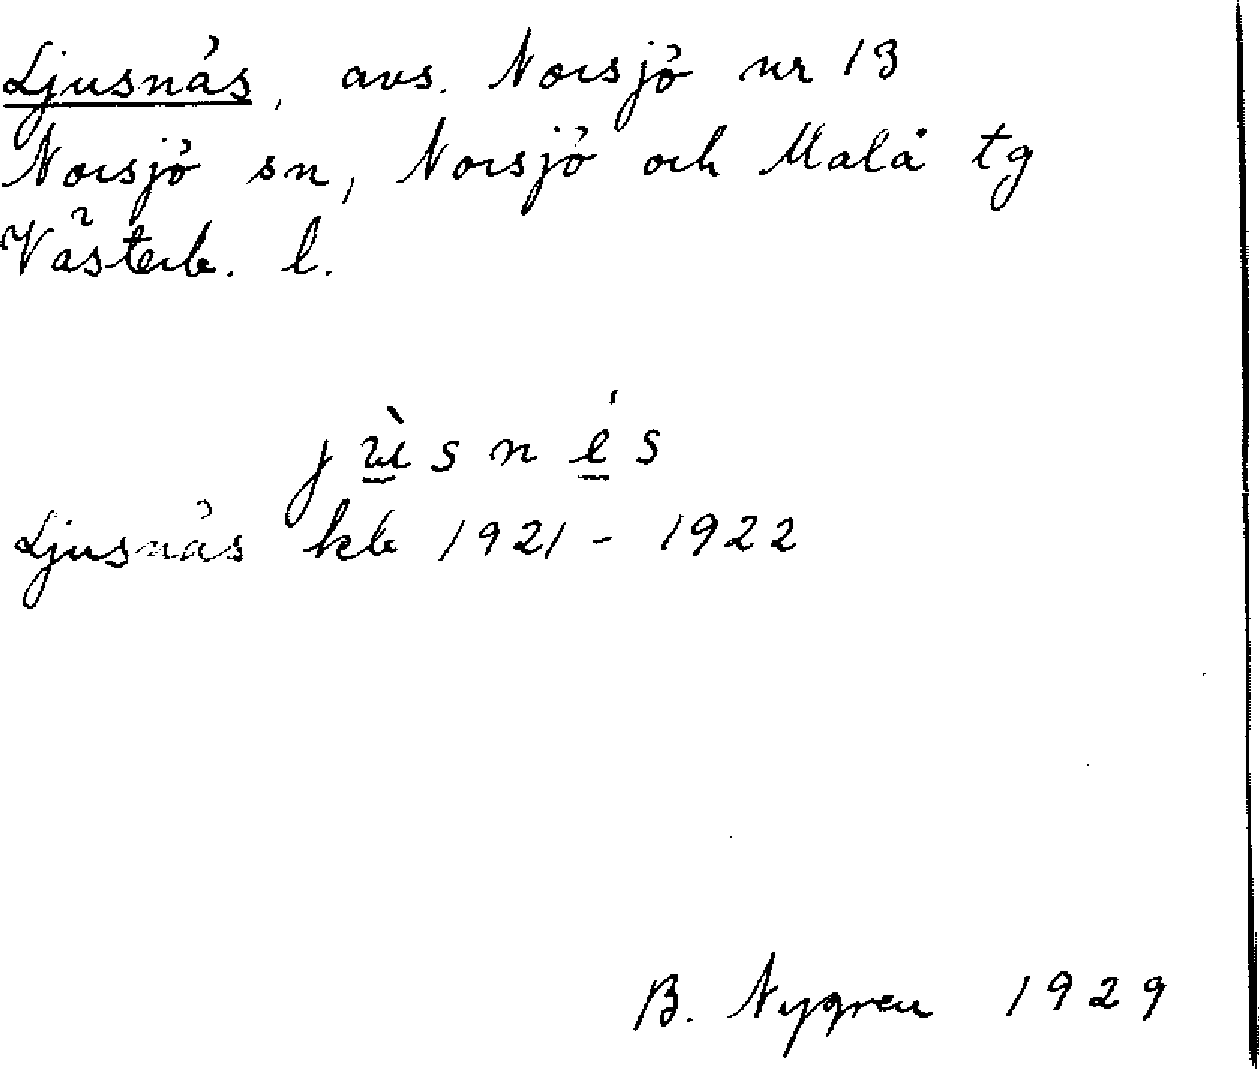 Ljusnäs, avs. Norsjö nr 13
Norsjö sn, Norsjö och Malå tg
Västerb. l.
jùsnés
Ljusnäs kb 1921-1922
B. Nygren 1929